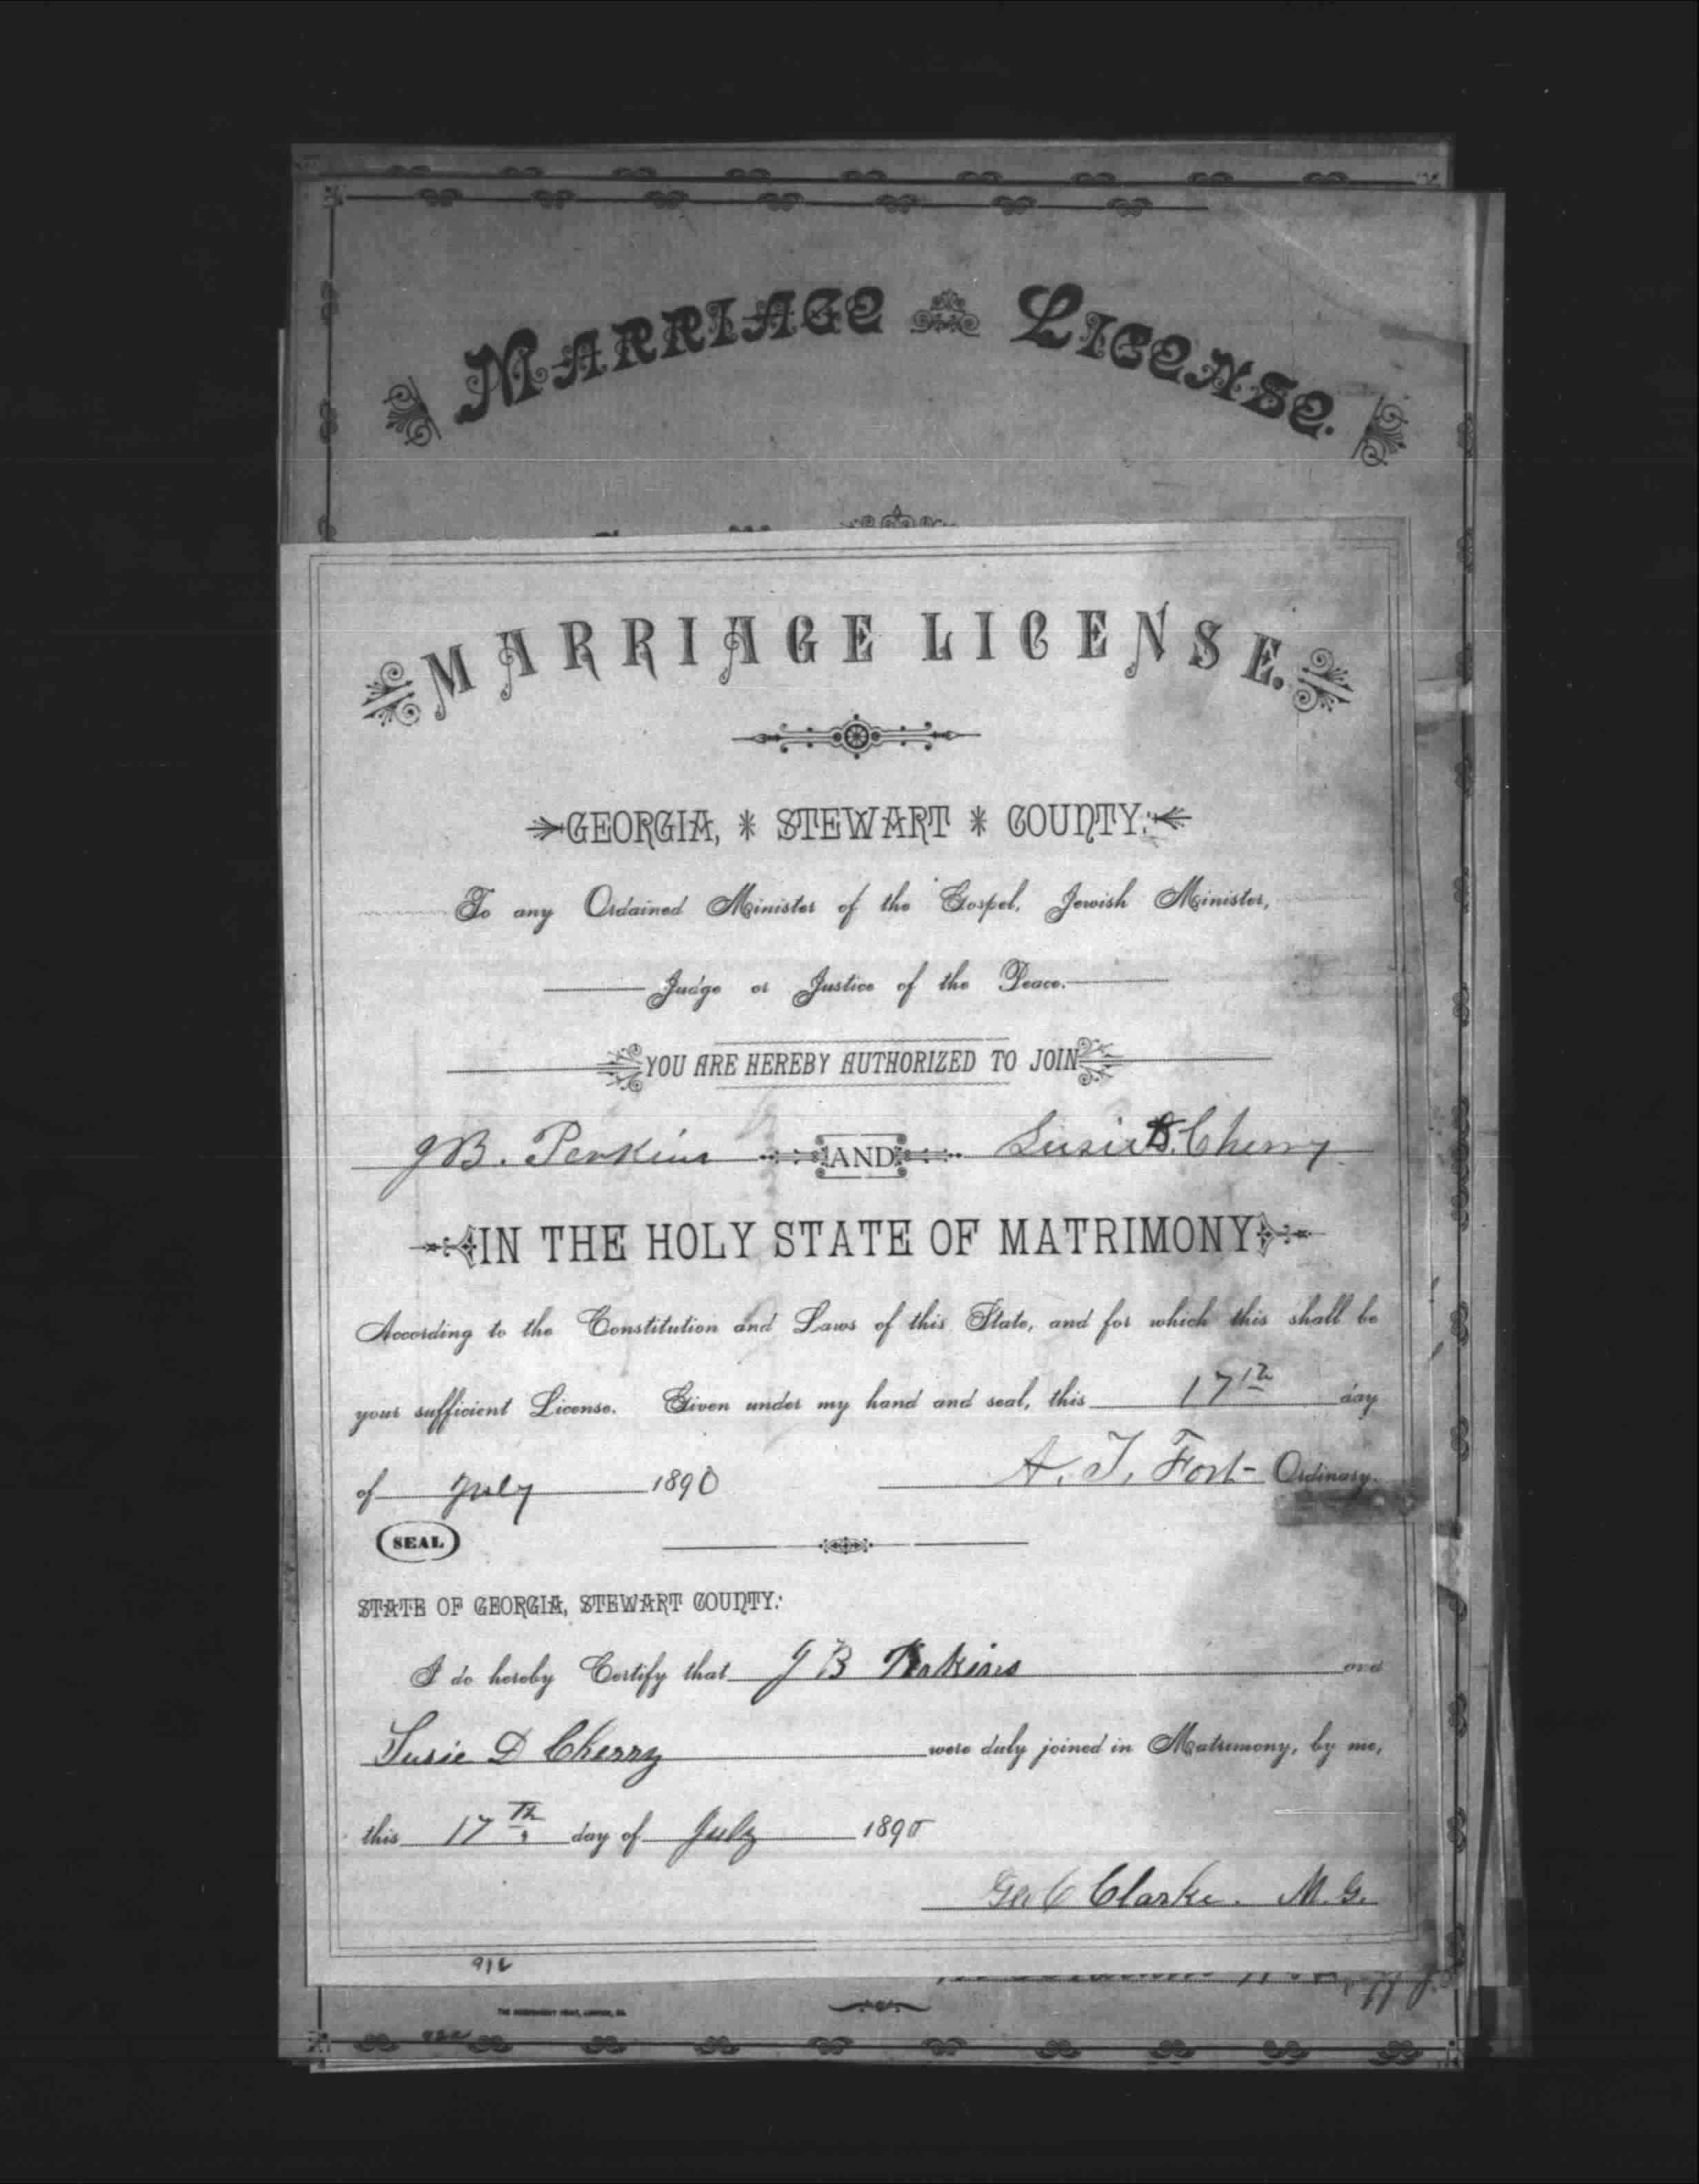 MARRIAGE LICENSE.
MARRIAGE LICENSE.
GEORGIA, * STEWART * COUNTY:
To any Ordained Minister of the Gospel, Jewish Minister,
Judge or Justice of the Peace.
YOU ARE HEREBY AUTHORIZED TO JOIN
J B. Perkins AND Susie D. Cherry
IN THE HOLY STATE OF MATRIMONY
According to the Constitution and Laws of this State, and for which this shall be
your sufficient License. Given under my hand and seal, this 17th day
of July 1890 A. T. Fort Ordinary.
SEAL
STATE OF GEORGIA, STEWART COUNTY:
I do hereby Certify that J B Perkins and
Susie D Cherry were duly joined in Matrimony, by me,
this 17th day of July 1890
Clarke. M. G.